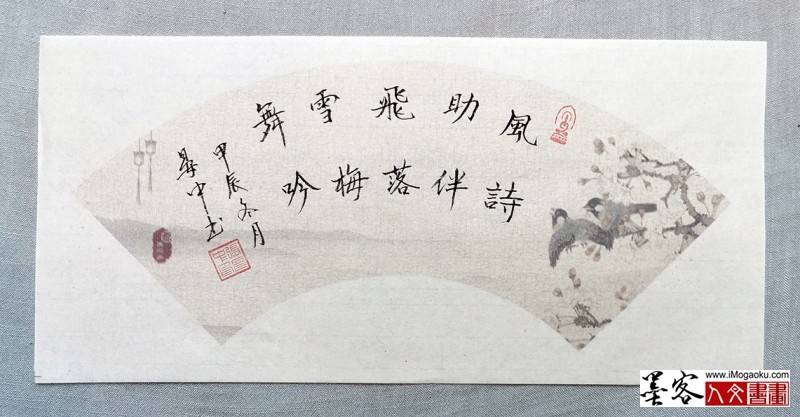 風助飛雪舞
詩伴落梅吟
甲辰冬月
中书
www.iMogaoku.com
墨客人文書畫